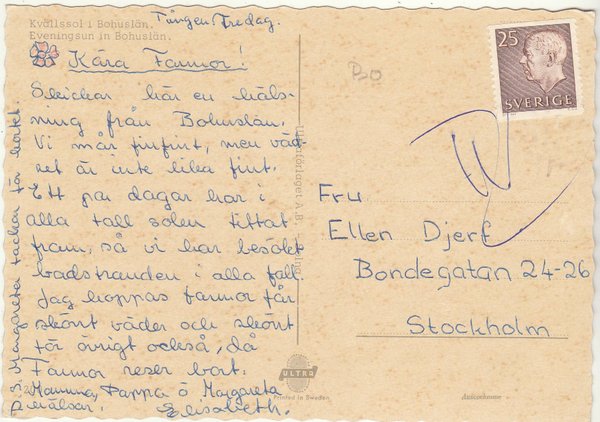 Kvällssol i Bohuslän.
Eveningsun in Bohuslän.
Tången. Fredag.
Kära Farmor!
Skickar här en häls-
ning från Bohuslän.
Vi mår finfint, men väd-
ret är inte lika fint.
Ett par dagar har i
alla fall solen tittat
fram, så vi har besökt
badstranden i alla fall.
Jag hoppas Farmor får
skönt väder och skönt
för övrigt också, då
Farmor reser bort.
Mamma, Pappa o Margareta
hälsar. Elisabeth.
P.S. Margareta tackar för kortet.
25
SVERIGE
Fru
Ellen Djerf
Bondegatan 24-26
Stockholm
ULTRA
Printed in Sweden